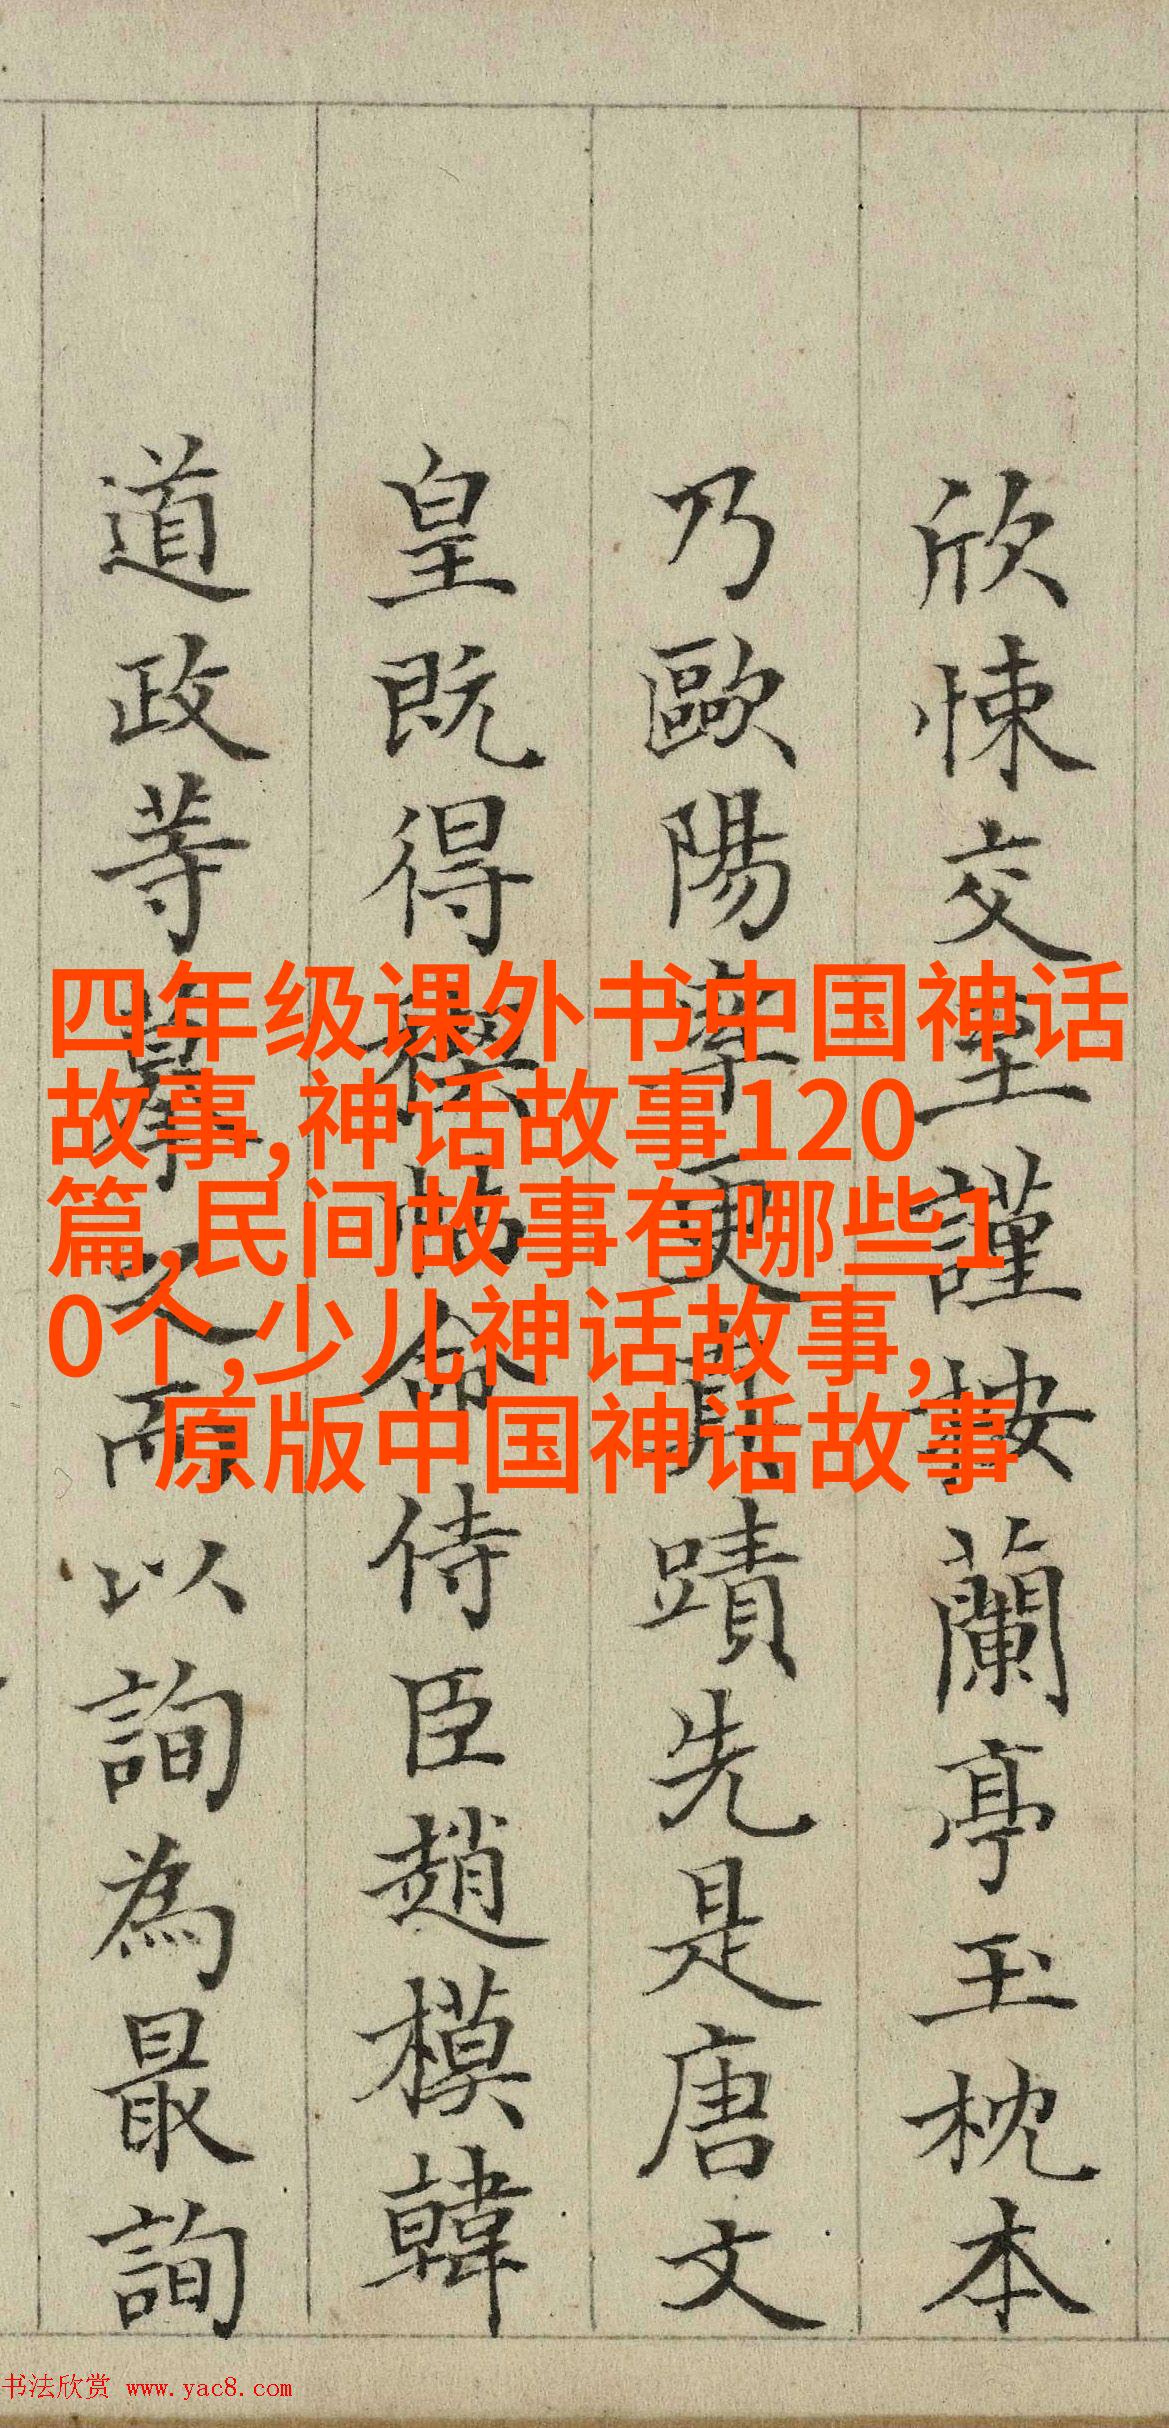 四年级课外书中国神话
故事,神话故事120
篇,民间故事有哪些1
0个,少儿神话故事,
原版中国神话故事
欣悚交至謹按蘭亭玉枕本
乃歐陽率更真蹟先是唐文
皇既得禊帖命侍臣趙模韓
道政等摹之而以詢為最詢
书法欣赏 www.yac8.com